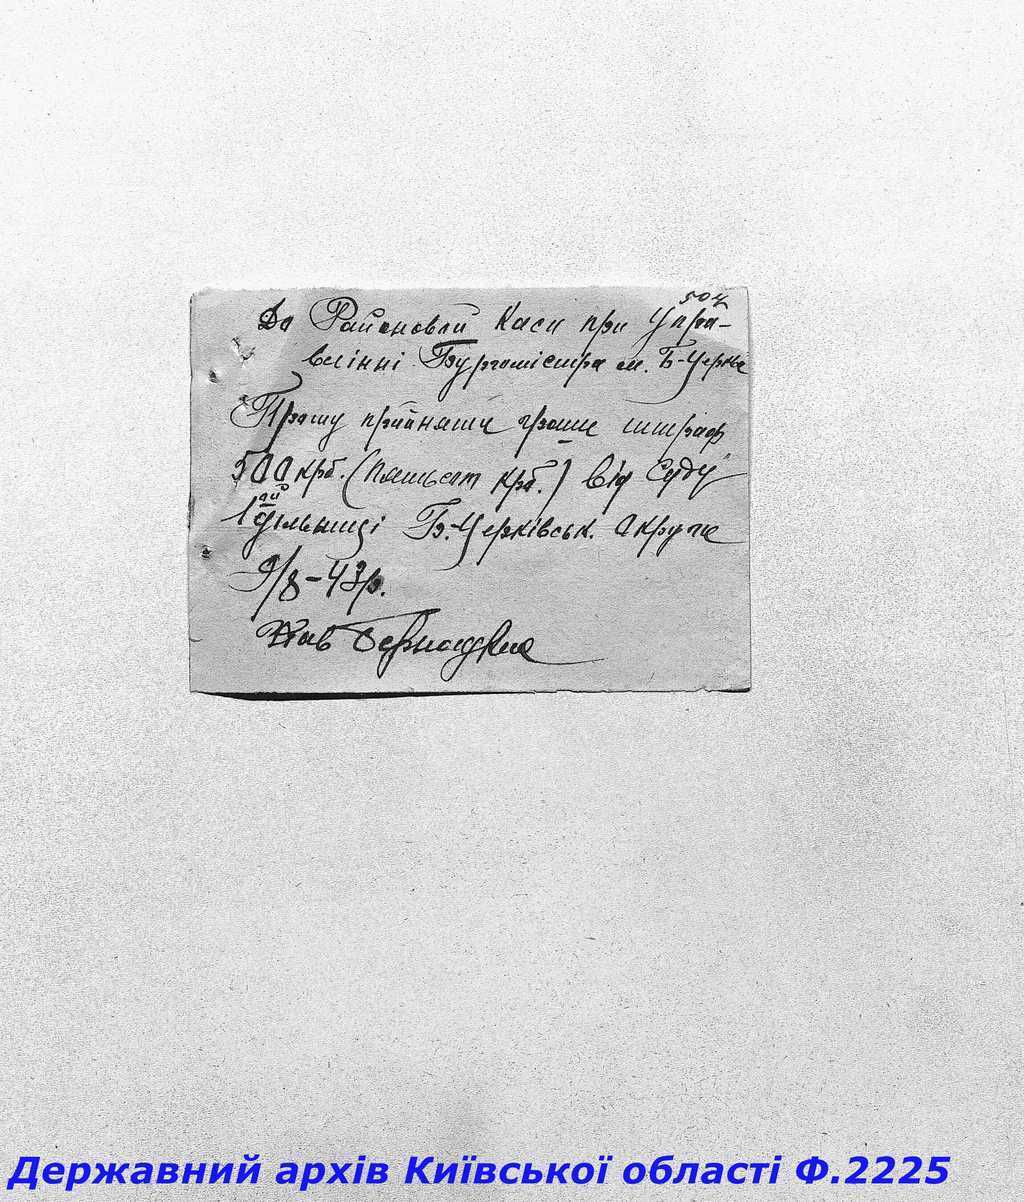 504
До Районовой Каси при Упра-
влінні Бургомістра м. Б-Церква
Прошу прийняти гроши штраф
500 крб. (пятьсат крб.) від Суду
1ой дільниці Б.-Церківськ. Округи
9/8-43р.
Зав
Державний архів Київської області Ф.2225